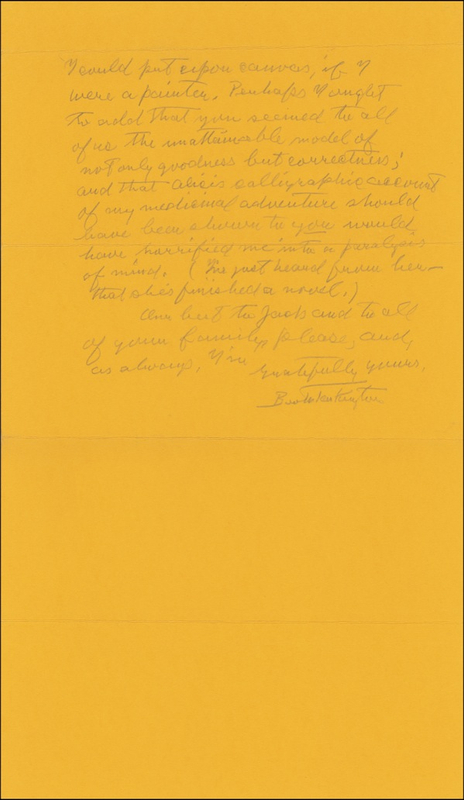 I could put upon canvas, if I
were a painter. Perhaps I ought
to add that you seemed to all
of us the unattainable model of
not only goodness but correctness;
and that Alice's calligraphic account
of my medicinal adventure should
have been shown to you would
have horrified me into a paralysis
of mind. (I've just heard from her—
that she's finished a novel.)
Our best to Jack and to all
of your family, please, and,
as always, I'm
Gratefully yours,
Booth Tarkington